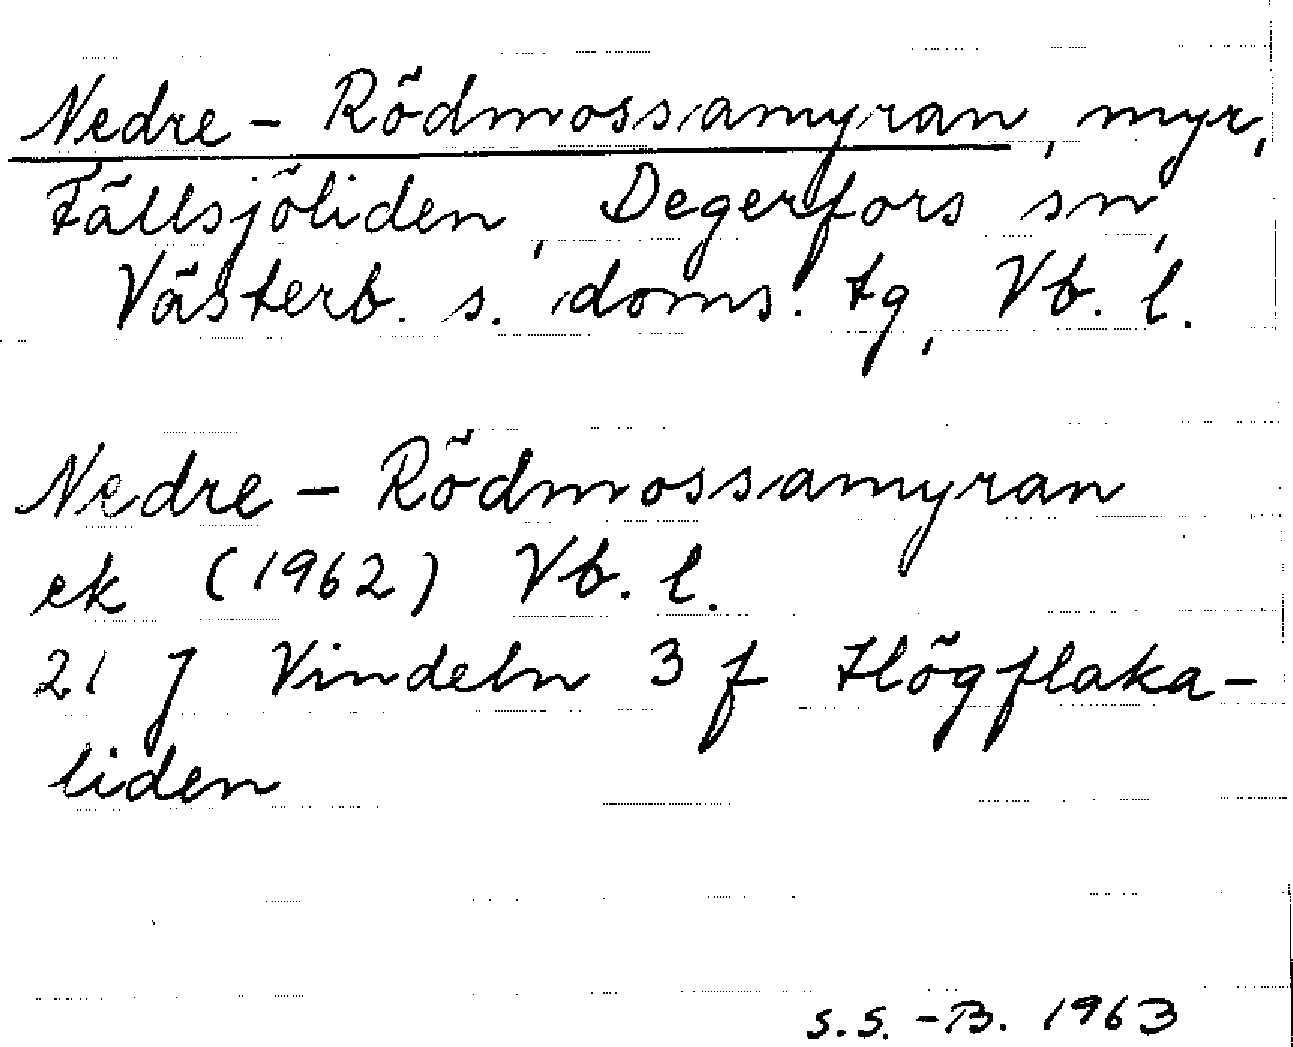 Nedre - Rödmossamyran, myr,
Fällsjöliden, Degerfors sn,
Västerb. s. doms. tg, Vb. l.
Nedre - Rödmossamyran
ek (1962) Vb. l.
21 J Vindeln 3 f Högflaka-
liden
S.S.-B. 1963